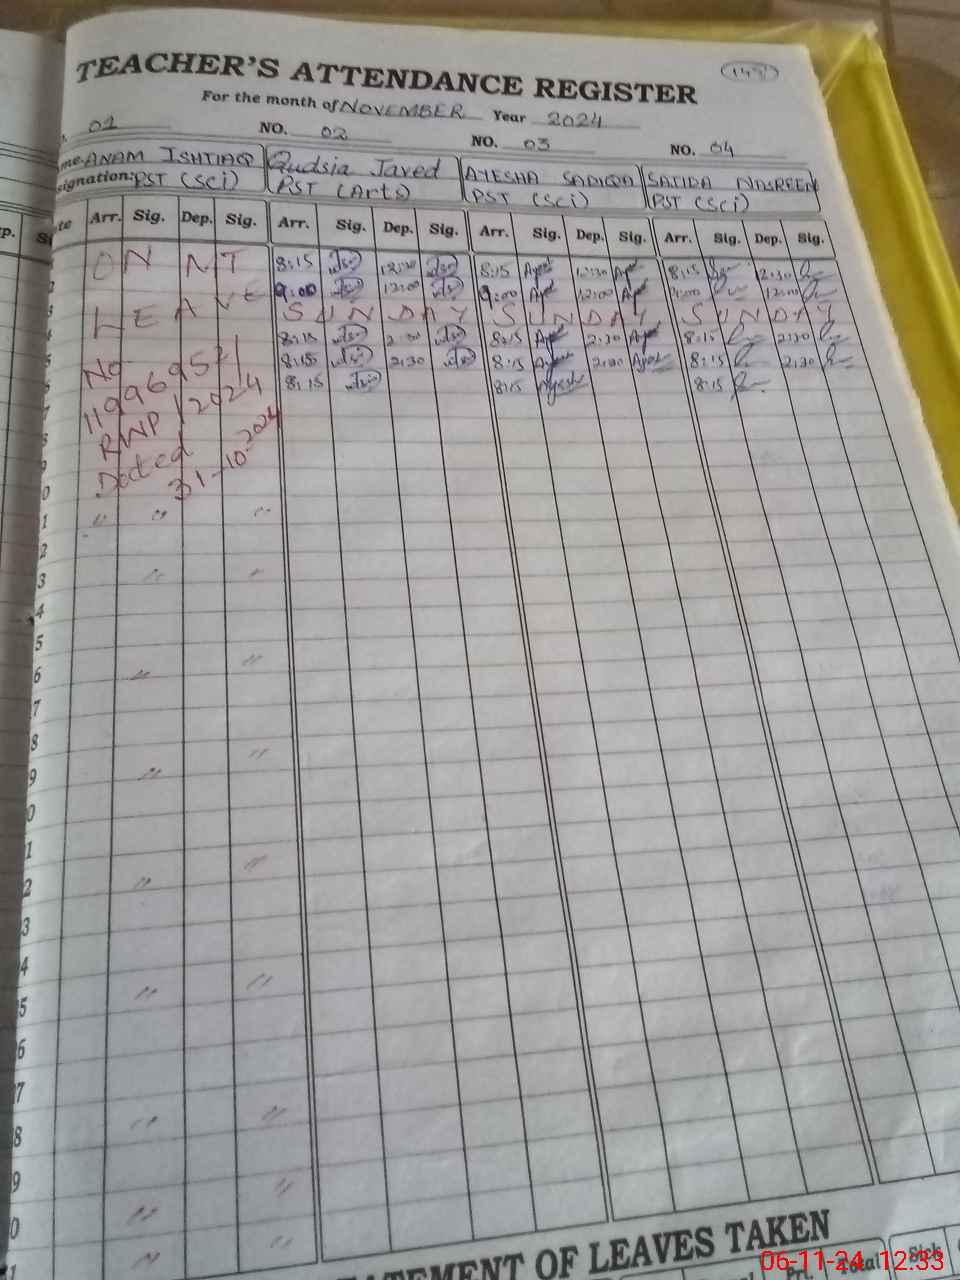 (145)
TEACHER'S ATTENDANCE REGISTER
For the month of NOVEMBER Year 2024
01 NO. 02 NO. 03 NO. 04
me ANAM ISHTIAQ Qudsia Javed AYESHA SADIQA SAJIDA NASREEN
signation: PST (Sci) PST (Arts) PST (Sci) PST (Sci)
p. Si te Arr. Sig. Dep. Sig. Arr. Sig. Dep. Sig. Arr. Sig. Dep. Sig. Arr. Sig. Dep. Sig.
ON MT 8:15 12:30 8:15 12:30 8:15 2:30
2 9:00 12:00 9:00 12:00 9:00 12:00
3 LEAVE SUNDAY SUNDAY SUNDAY
4 8:15 2:30 8:15 2:30 8:15 2:30
5 No 8:15 2:30 8:15 2:30 8:15 2:30
6 11996952/ 8:15 8:15 Ayesh 8:15
7 RWP/2024
8 Dated
9 31-10-2024
0
1 " " "
2
3 " "
4
5
6 " "
7
8
9 " "
0
1
2 " "
3
4
5 " "
6
7
8 " "
9
0 " "
1 " "
STATEMENT OF LEAVES TAKEN
Pri. Total Sick
06-11-24 12:33